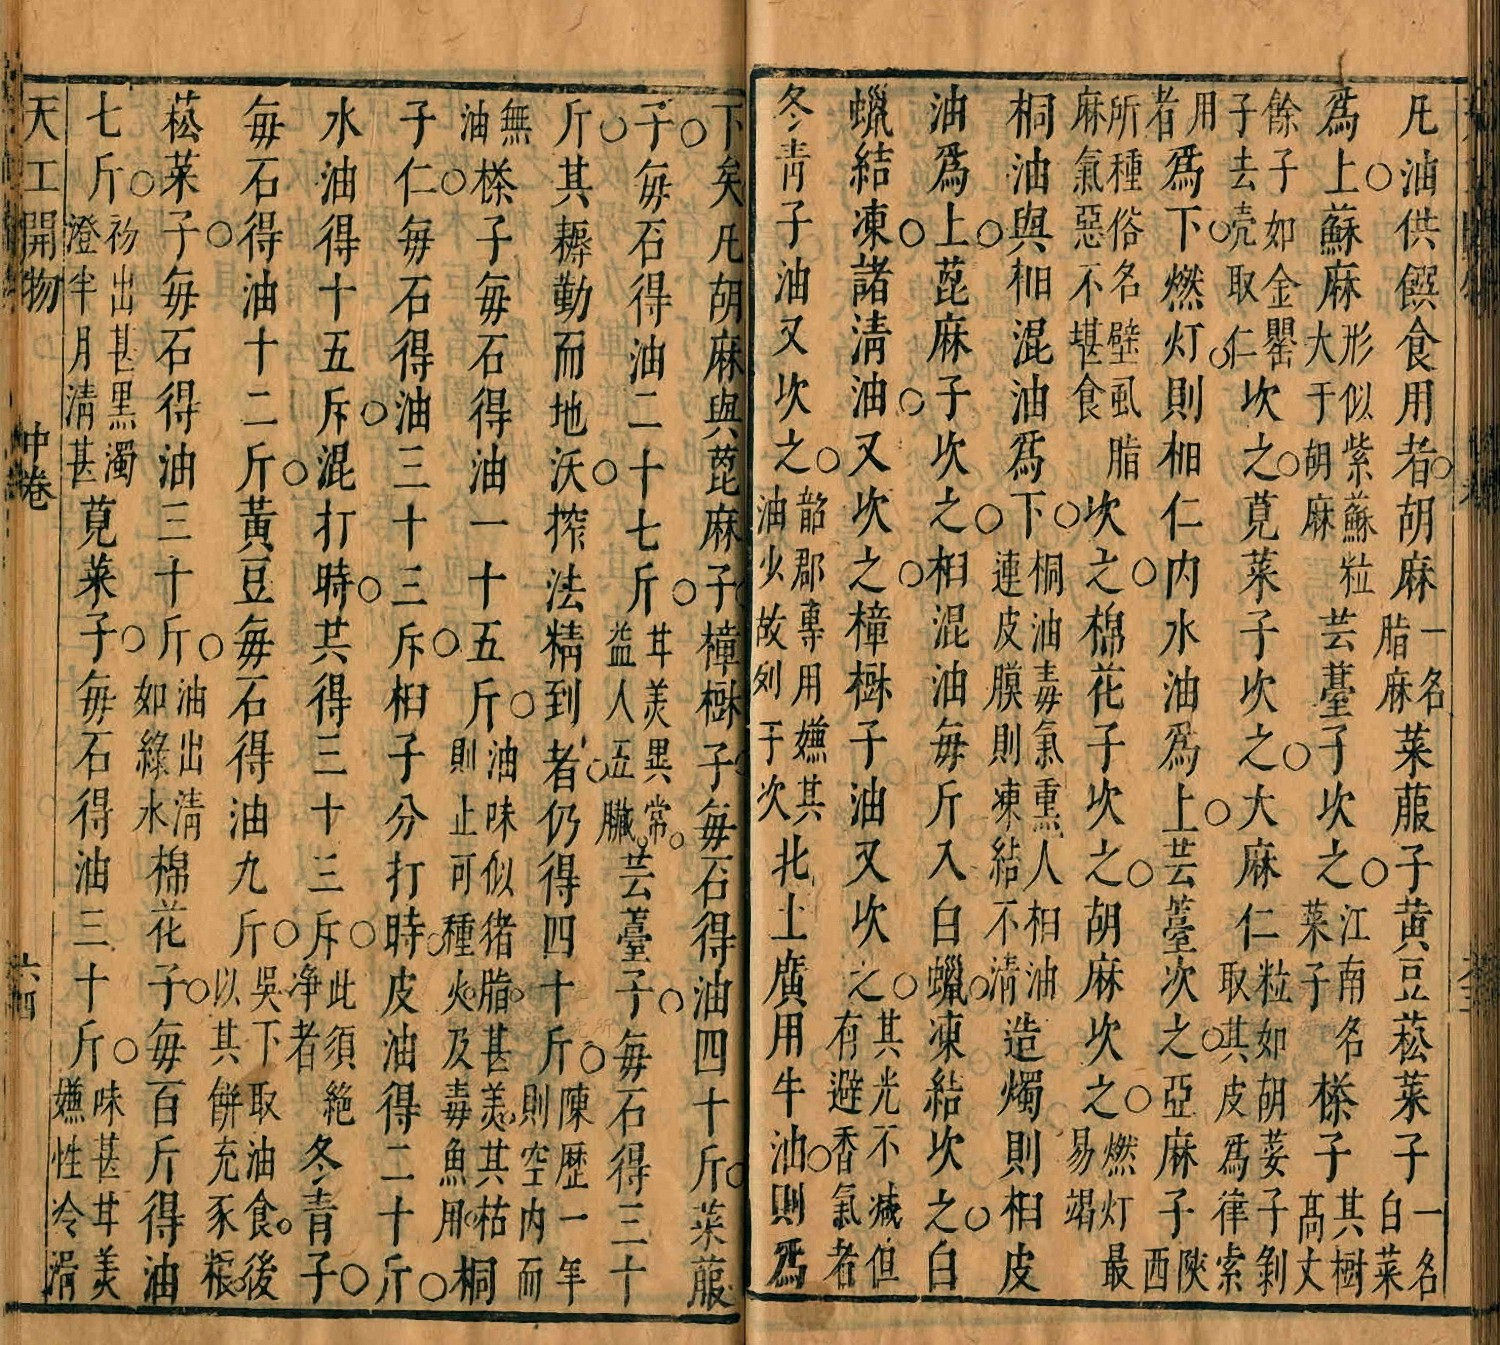 凡油供饌食用者胡麻一名脂麻萊菔子黃豆菘菜子一名白菜
爲上蘇麻形似紫蘇粒大于胡麻芸薹子次之江南名菜子㮈子其樹高丈
餘子如金罌子去壳取仁次之莧菜子次之大麻仁粒如胡荽子剝取其皮爲律索
用者爲下燃灯則桕仁內水油爲上芸薹次之亞麻子陝西
所種俗名壁虱脂麻氣惡不堪食次之棉花子次之胡麻次之燃灯最易竭
桐油與桕混油爲下桐油毒氣熏人桕油連皮膜則凍結不清造燭則桕皮
油爲上蓖麻子次之桕混油每斤入白蠟凍結次之白
蠟結凍諸清油又次之樟樹子油又次之其光不減但有避香氣者
冬青子油又次之韶郡專用嫌其油少故列于次北土廣用牛油則爲
下矣凡胡麻與蓖麻子樟樹子每石得油四十斤萊菔
子每石得油二十七斤甘美異常益人五臟芸薹子每石得三十
斤其耨勤而地沃榨法精到者仍得四十斤陳歷一年則空內而
無油㮈子每石得油一十五斤油味似猪脂甚美其枯則止可種火及毒魚用桐
子仁每石得油三十三斤桕子分打時皮油得二十斤
水油得十五斤混打時共得三十三斤此須絶净者冬青子
每石得油十二斤黃豆每石得油九斤吳下取油食後以其餅充豕粮
菘菜子每石得油三十斤油出清如綠水棉花子每百斤得油
七斤初出甚黑濁澄半月清甚莧菜子每石得油三十斤味甚甘美嫌性冷滑
天工開物 中卷 六四